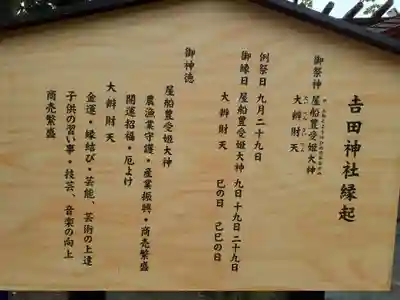 吉田神社縁起
御祭神 屋船豊受姫大神
大辨財天
例祭日 九月二十九日
御縁日 屋船豊受姫大神 九日 十九日 二十九日
大辨財天 巳の日 己巳の日
御神徳
屋船豊受姫大神
農漁業守護・産業振興・商売繁盛
開運招福・厄よけ
大辨財天
金運・縁結び・芸能、芸術の上達
子供の習い事・技芸、音楽の向上
商売繁盛